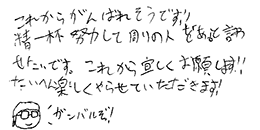 これからがんばれそうです!!
精一杯 努力して 周りの人 をあっと言わ
せたいです。これから宜しくお願します!!
たいへん楽しくやらせていただきます!
ガンバルぞ!